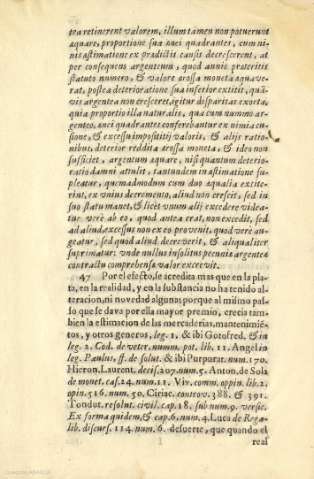 tea retinerent valorem, illum tamen non potuerunt
æquare, proportione sua auci quadranter, cum ni-
nis æstimatione ex prædictis causis decrescerent, at
per consequens argenteum, quod annis præteritis
statuto numero, & valore grossa moneta æquave-
rat, postea deterioratione sua inferior extitit, quā-
vis argentea non cresceret, igitur disparitas exorta,
quia proportio illa naturalis, qua cum nummo ar-
genteo, auci quadrantes conferebantur ex nimia cu-
sione, & excessu impositij valoris, & alijs ratio-
nibus, deterior reddita grossa moneta, & ideo non
sufficiet, argentum æquare, nisi quantum deterio-
ratio damni attulit, tantundem in æstimatione su-
pleatur, quemadmodum cum duo æqualia extite-
rint, ex vnius decremento, aliud non crescit, sed in
suo statu manet, & licèt vnum alij excedere videa-
tur verè ab eo, quod antea erat, non excedit, sed
ad aliud excessus non ex eo provenit, quod verè au-
geatur, sed quod aliud decreverit, & aliqualiter
suprimatur, vnde nullus insolitus pecuniæ argenteæ
contractu comprehensa valor excrevit.
47 Por el efecto, se acredita mas que en la pla-
ta, en la realidad, y en la substancia no ha tenido al-
teracion, ni novedad alguna, porque al mismo pas-
so que se dava por ella mayor premio, crecia tam-
bien la estimacion de las mercaderias, mantenimiē-
tos, y otros generos, leg. 1. & ibi Gotofred. & in
leg. 2. Cod. de veter. numm. pot. lib. 11. Angelio
leg. Paulus, ff. de solut. & ibi Purpurat. num. 170.
Hieron. Laurent. decis. 207. num. 5. Anton. de Sola
de monet. cas. 24. num. 11. Viv. comm. oppin. lib. 2.
opin. 516. num. 50. Ciriac. controv. 388. & 391.
Tondut. resolut. civil. cap. 18. sub num. 9. versic.
Ex forma quidem, & cap. 6. num. 4. Luca de Rega-
lib. discurs. 114. num. 6. de suerte, que quando el
real